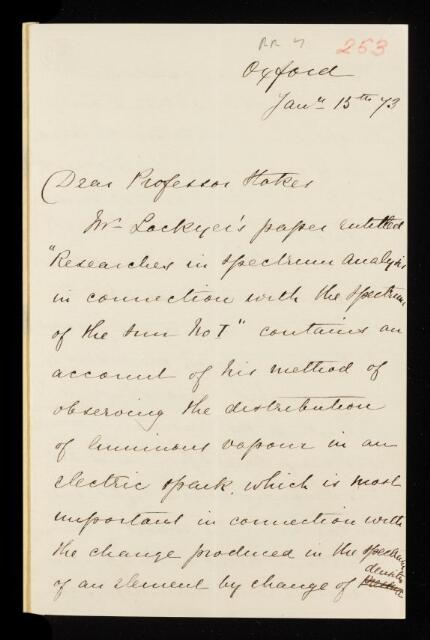 RR 7
253
Oxford
Jany 15th 73
Dear Professor Stokes
Mr Lockyer's paper entitled
"Researches in spectrum analysis
in connection with the spectrum
of the sun No I" contains an
account of his method of
observing the distribution
of luminous vapour in an
electric spark, which is most
important in connection with
the change produced in the spectrum
density
of an element by change of